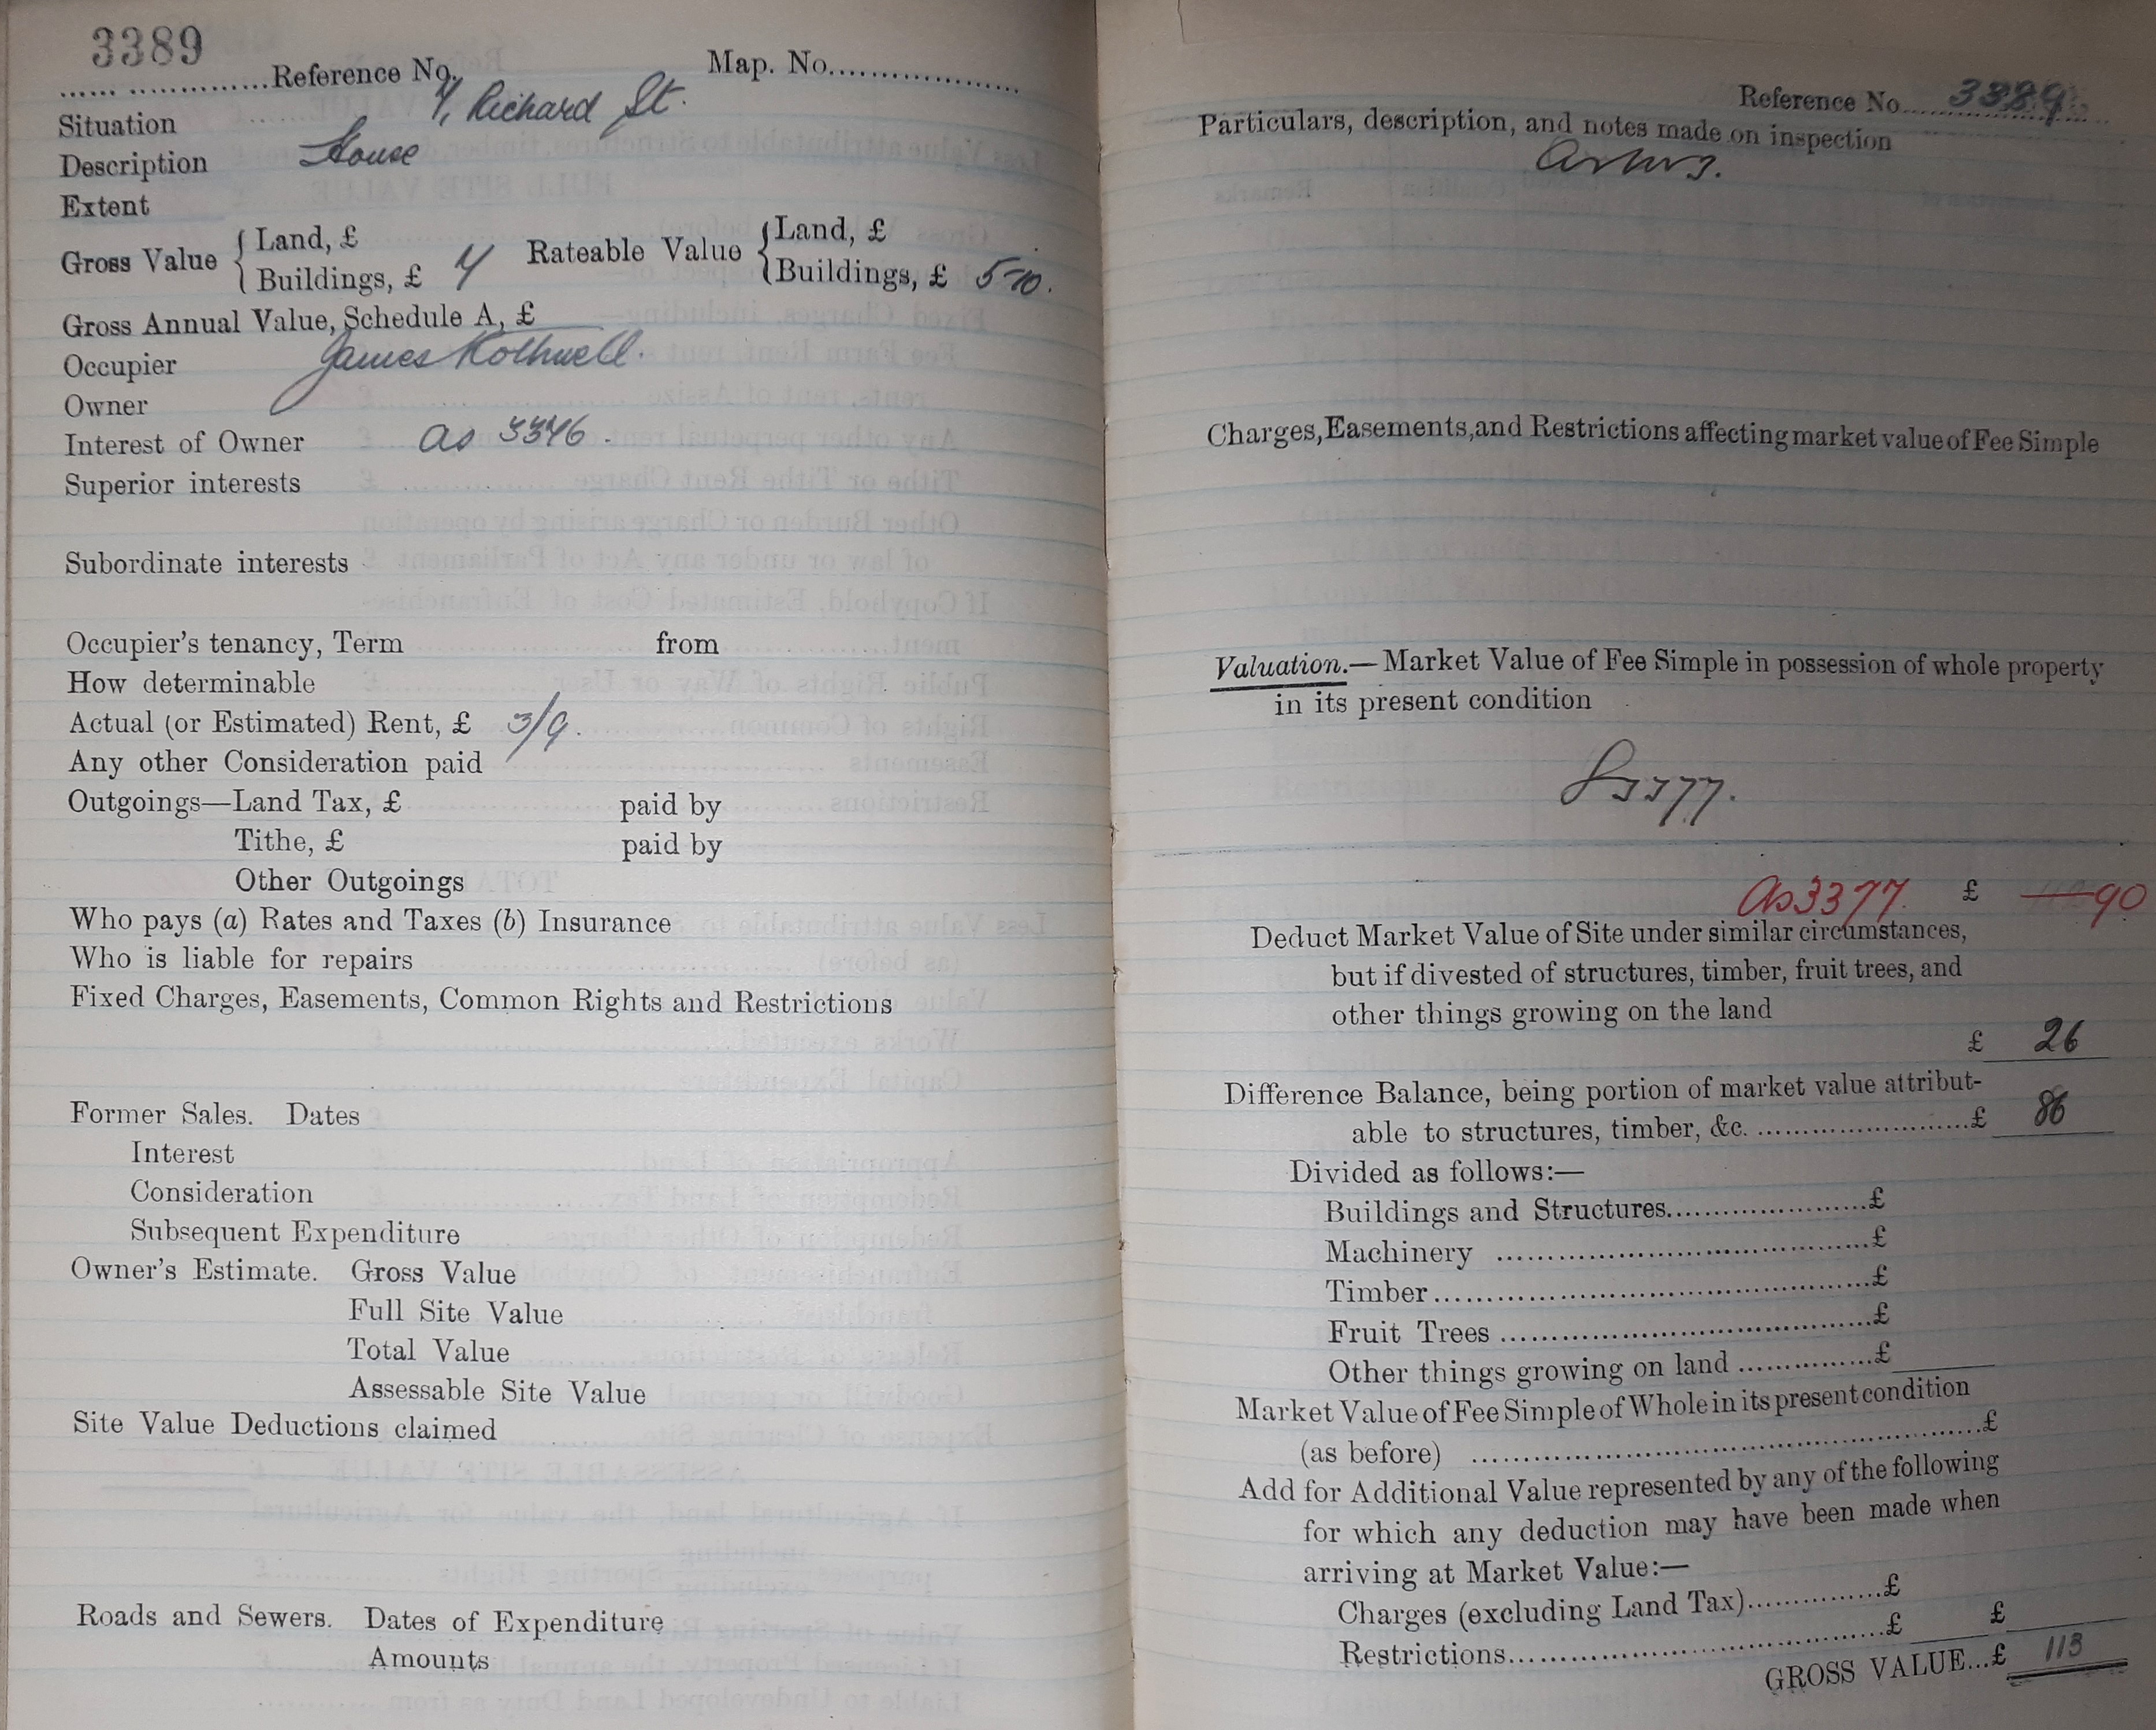 3389
Reference No. Map. No.
Situation 4, Richard St.
Description House
Extent
Gross Value { Land, £ Rateable Value { Land, £
Buildings, £ 4 Buildings, £ 5-10.
Gross Annual Value, Schedule A, £
Occupier James Rothwell.
Owner
Interest of Owner as 3346.
Superior interests
Subordinate interests
Occupier's tenancy, Term from
How determinable
Actual (or Estimated) Rent, £ 3/9.
Any other Consideration paid
Outgoings—Land Tax, £ paid by
Tithe, £ paid by
Other Outgoings
Who pays (a) Rates and Taxes (b) Insurance
Who is liable for repairs
Fixed Charges, Easements, Common Rights and Restrictions
Former Sales. Dates
Interest
Consideration
Subsequent Expenditure
Owner's Estimate. Gross Value
Full Site Value
Total Value
Assessable Site Value
Site Value Deductions claimed
Roads and Sewers. Dates of Expenditure
Amounts
Reference No. 3389
Particulars, description, and notes made on inspection
Charges, Easements, and Restrictions affecting market value of Fee Simple
Valuation.— Market Value of Fee Simple in possession of whole property
in its present condition
As 3377. £ 90
Deduct Market Value of Site under similar circumstances,
but if divested of structures, timber, fruit trees, and
other things growing on the land
£ 26
Difference Balance, being portion of market value attribut-
able to structures, timber, &c. £ 86
Divided as follows:—
Buildings and Structures £
Machinery £
Timber £
Fruit Trees £
Other things growing on land £
Market Value of Fee Simple of Whole in its present condition
(as before) £
Add for Additional Value represented by any of the following
for which any deduction may have been made when
arriving at Market Value:—
Charges (excluding Land Tax) £
Restrictions £ £
GROSS VALUE...£ 113